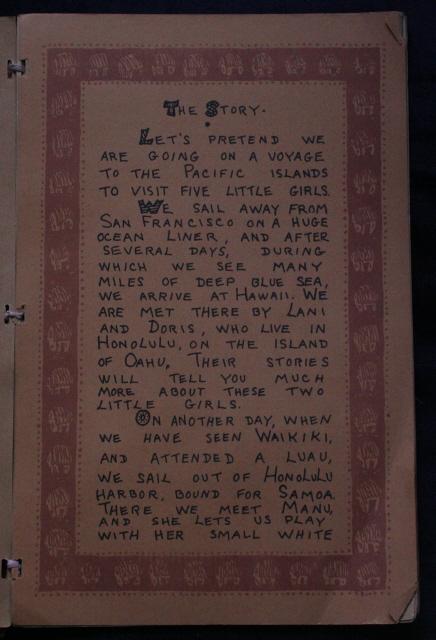 The Story.
Let's pretend we
are going on a voyage
to the Pacific Islands
to visit five little girls.
We sail away from
San Francisco on a huge
ocean liner, and after
several days, during
which we see many
miles of deep blue sea,
we arrive at Hawaii. We
are met there by Lani
and Doris, who live in
Honolulu, on the island
of Oahu, Their stories
will tell you much
more about these two
little girls.
On another day, when
we have seen Waikiki,
and attended a luau,
we sail out of Honolulu
Harbor, bound for Samoa.
There we meet Manu,
and she lets us play
with her small white